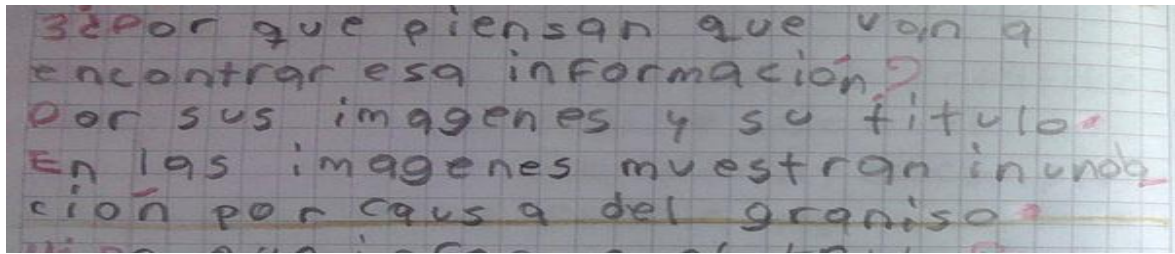 3¿Por que piensan que van a
encontrar esa información?
Por sus imagenes y su titulo.
En las imagenes muestran inunda
ción por causa del graniso.